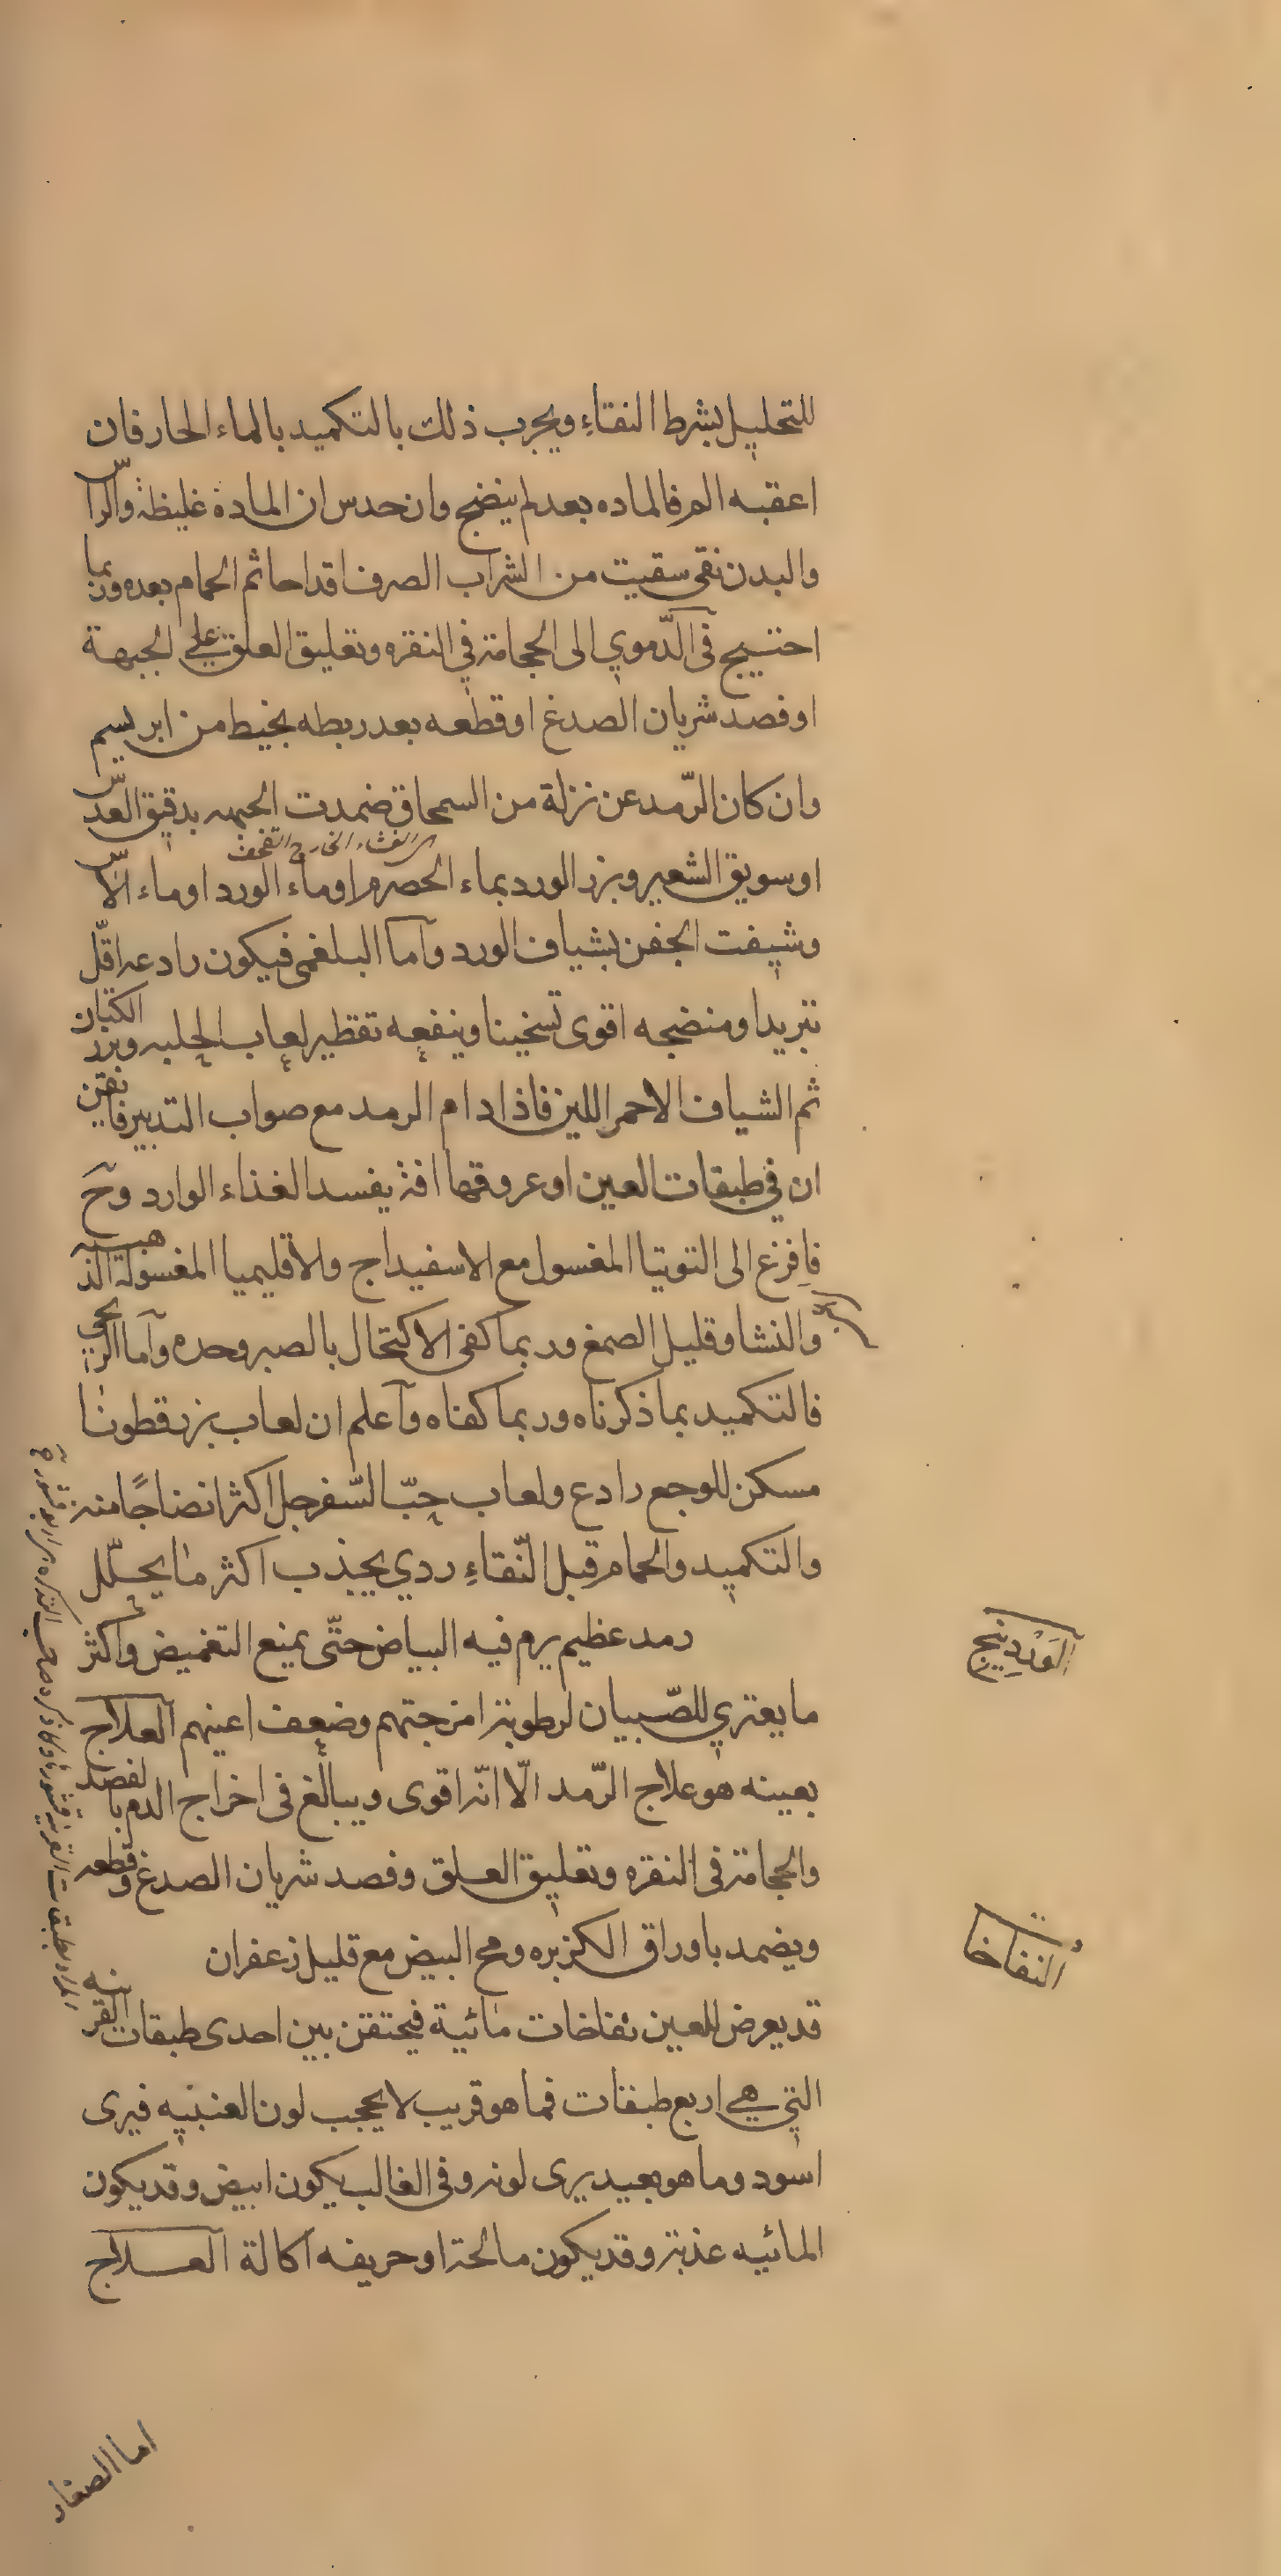 للتحليل بشرط النقاءِ ويجرب ذلك بالتكميد بالماء الحار فان
اعقبه الم فالماده بعد لم ينضج وان حدس ان المادة غليظة والراس
والبدن نقي سقيت من الشراب الصرف اقداحا ثم الحمام بعده وربما
احتيج في الدّموي الى الحجامة في النقره وتعليق العلق علي الجبهة
او فصد شريان الصدغ او قطعه بعد ربطه بخيط من ابريسم
وان كان الرّمد عن نزلة من السمحاق ضمدت الجبهه بدقيق العدس
الغشاء الخارج القحف
او سويق الشعير وبزر الورد بماء الحصرم او ماء الورد او ماء الآس
وشيفت الجفن بشياف الورد وآما البلغمي فيكون رادعه اقلّ
تبريدا ومنضجه اقوى تسخينا وينفعه تقطير لعاب الحلبه وبزر الكتان
ثم الشياف الاحمر اللين فاذا دام الرمد مع صواب التدبير فايقن
ان في طبقات العين او عروقها افة يفسد الغذاء الوارد وحَ
فافزع الى التوتيا المغسول مع الاسفيداج والاقليميا المغسولة الذهبيه
والنشا وقليل الصمغ وربما كفى الاكتحال بالصبر وحده وآما الريحي
فالتكميد بما ذكرناه وربما كفناه وآعلم ان لعاب بزرقطونا
مسكن للوجع رادع ولعاب حبّ السّفرجل اكثر انضاجًا منه
والتكميد والحمام قبل النّقاءِ ردي يجذب اكثر مما يحلّل
الوَرْدِينج
رمد عظيم يرم فيه البياض حتّى يمنع التغميض واكثر
ما يعتري للصّبيان لرطوبة امزجتهم وضعف اعينهم آلعلاج
بعينه هو علاج الرّمد الّا انّه اقوى ويبالغ في اخراج الدم بالفصد
والحجامة في النقره وتعليق العلق وفصد شريان الصدغ وقطعه
ويضمد باوراق الكزبره ومح البيض مع قليل زعفران
النفاخات
قد يعرض للعين نفاخات مائية فيحتقن بين احدى طبقات القرنيه
التي هي اربع طبقات فما هو قريب لا يحجب لون العنبيه فيرى
اسود وما هو بعيد يرى لونه وفي الغالب يكون ابيض وقد يكون
المائيه عذبة وقد يكون مالحة او حريفه اكالة آلعلاج
اما الصغار